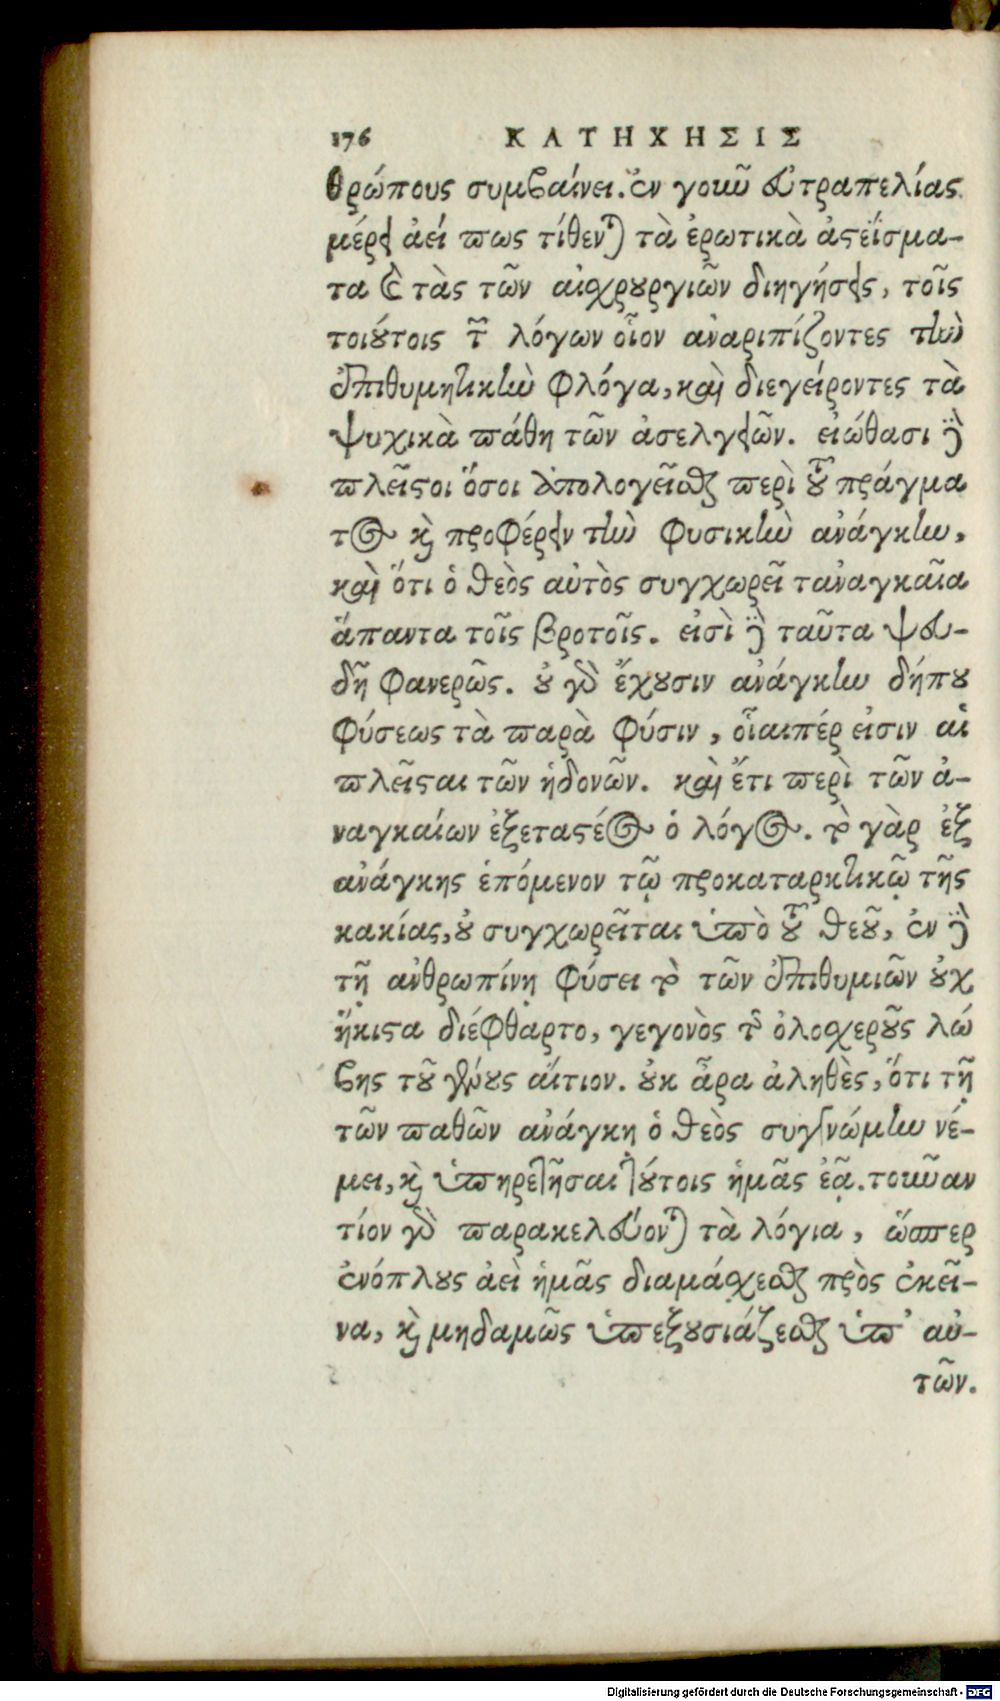 176 ΚΑΤΗΧΗΣΙΣ
θρώπους συμβαίνει. ἐν γοῦν εὐτραπελίας
μέρει ἀεί πως τίθενται τὰ ἐρωτικὰ ἀστεΐσμα-
τα καὶ τὰς τῶν αἰσχρουργιῶν διηγήσεις, τοῖς
τοιούτοις τῶν λόγων οἷον ἀναριπίζοντες τὴν
ἐπιθυμητικὴν φλόγα, καὶ διεγείροντες τὰ
ψυχικὰ πάθη τῶν ἀσελγειῶν. εἰώθασι δὲ
πλεῖστοι ὅσοι ἀπολογεῖσθαι περὶ τοῦ πράγμα
τος καὶ προφέρειν τὴν φυσικὴν ἀνάγκην,
καὶ ὅτι ὁ θεὸς αὐτὸς συγχωρεῖ τἀναγκαῖα
ἅπαντα τοῖς βροτοῖς. εἰσὶ δὲ ταῦτα ψευ-
δῆ φανερῶς. οὐ γὰρ ἔχουσιν ἀνάγκην δήπου
φύσεως τὰ παρὰ φύσιν, οἷαιπέρ εἰσιν αἱ
πλεῖσται τῶν ἡδονῶν. καὶ ἔτι περὶ τῶν ἀ-
ναγκαίων ἐξεταστέος ὁ λόγος. τὸ γὰρ ἐξ
ἀνάγκης ἑπόμενον τῷ προκαταρκτικῷ τῆς
κακίας, οὐ συγχωρεῖται ὑπὸ τοῦ θεοῦ, ἐν δὲ
τῇ ἀνθρωπίνῃ φύσει τὸ τῶν ἐπιθυμιῶν οὐχ
ἥκιστα διέφθαρτο, γεγονὸς τῆς ὁλοχεροῦς λώ
βης τοῦ γένους αἴτιον. οὐκ ἆρα ἀληθὲς, ὅτι τῇ
τῶν παθῶν ἀνάγκῃ ὁ θεὸς συγγνώμην νέ-
μει, καὶ ὑπηρετῆσαι τούτοις ἡμᾶς ἐᾷ. τοὐναν
τίον γὰρ παρακελεύονται τὰ λόγια, ὥσπερ
ἐνόπλους ἀεὶ ἡμᾶς διαμάχεσθαι πρὸς ἐκεῖ-
να, καὶ μηδαμῶς ὑπεξουσιάζεσθαι ὑπ' αὐ-
τῶν.
Digitalisierung gefördert durch die Deutsche Forschungsgemeinschaft - DFG